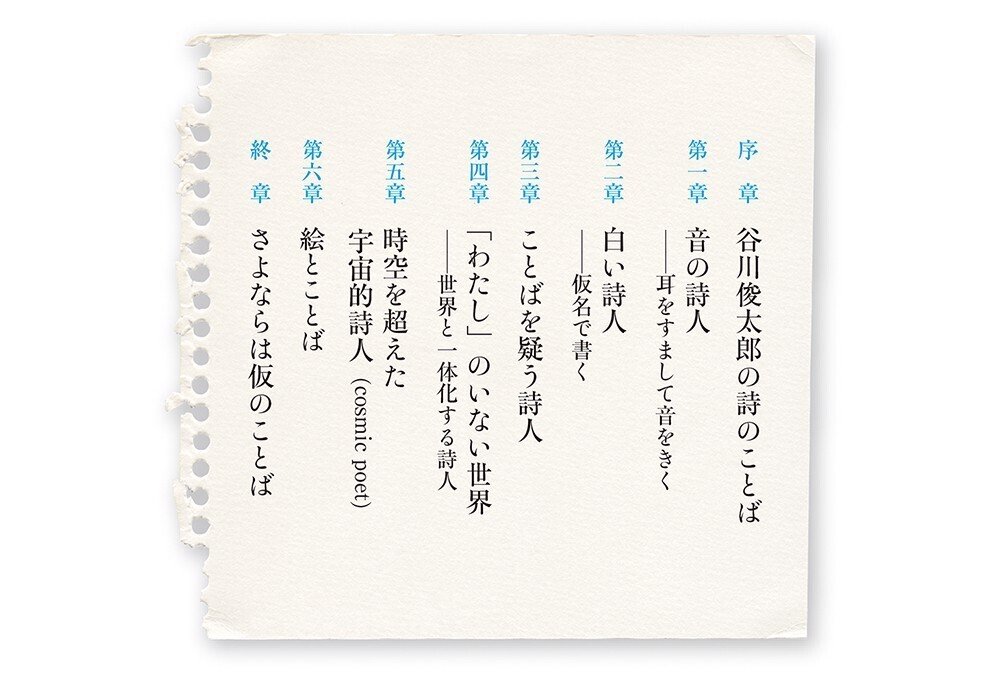 序　章　谷川俊太郎の詩のことば
第一章　音の詩人
――耳をすまして音をきく
第二章　白い詩人
――仮名で書く
第三章　ことばを疑う詩人
第四章　「わたし」のいない世界
――世界と一体化する詩人
第五章　時空を超えた
宇宙的詩人（cosmic poet）
第六章　絵とことば
終　章　さよならは仮のことば